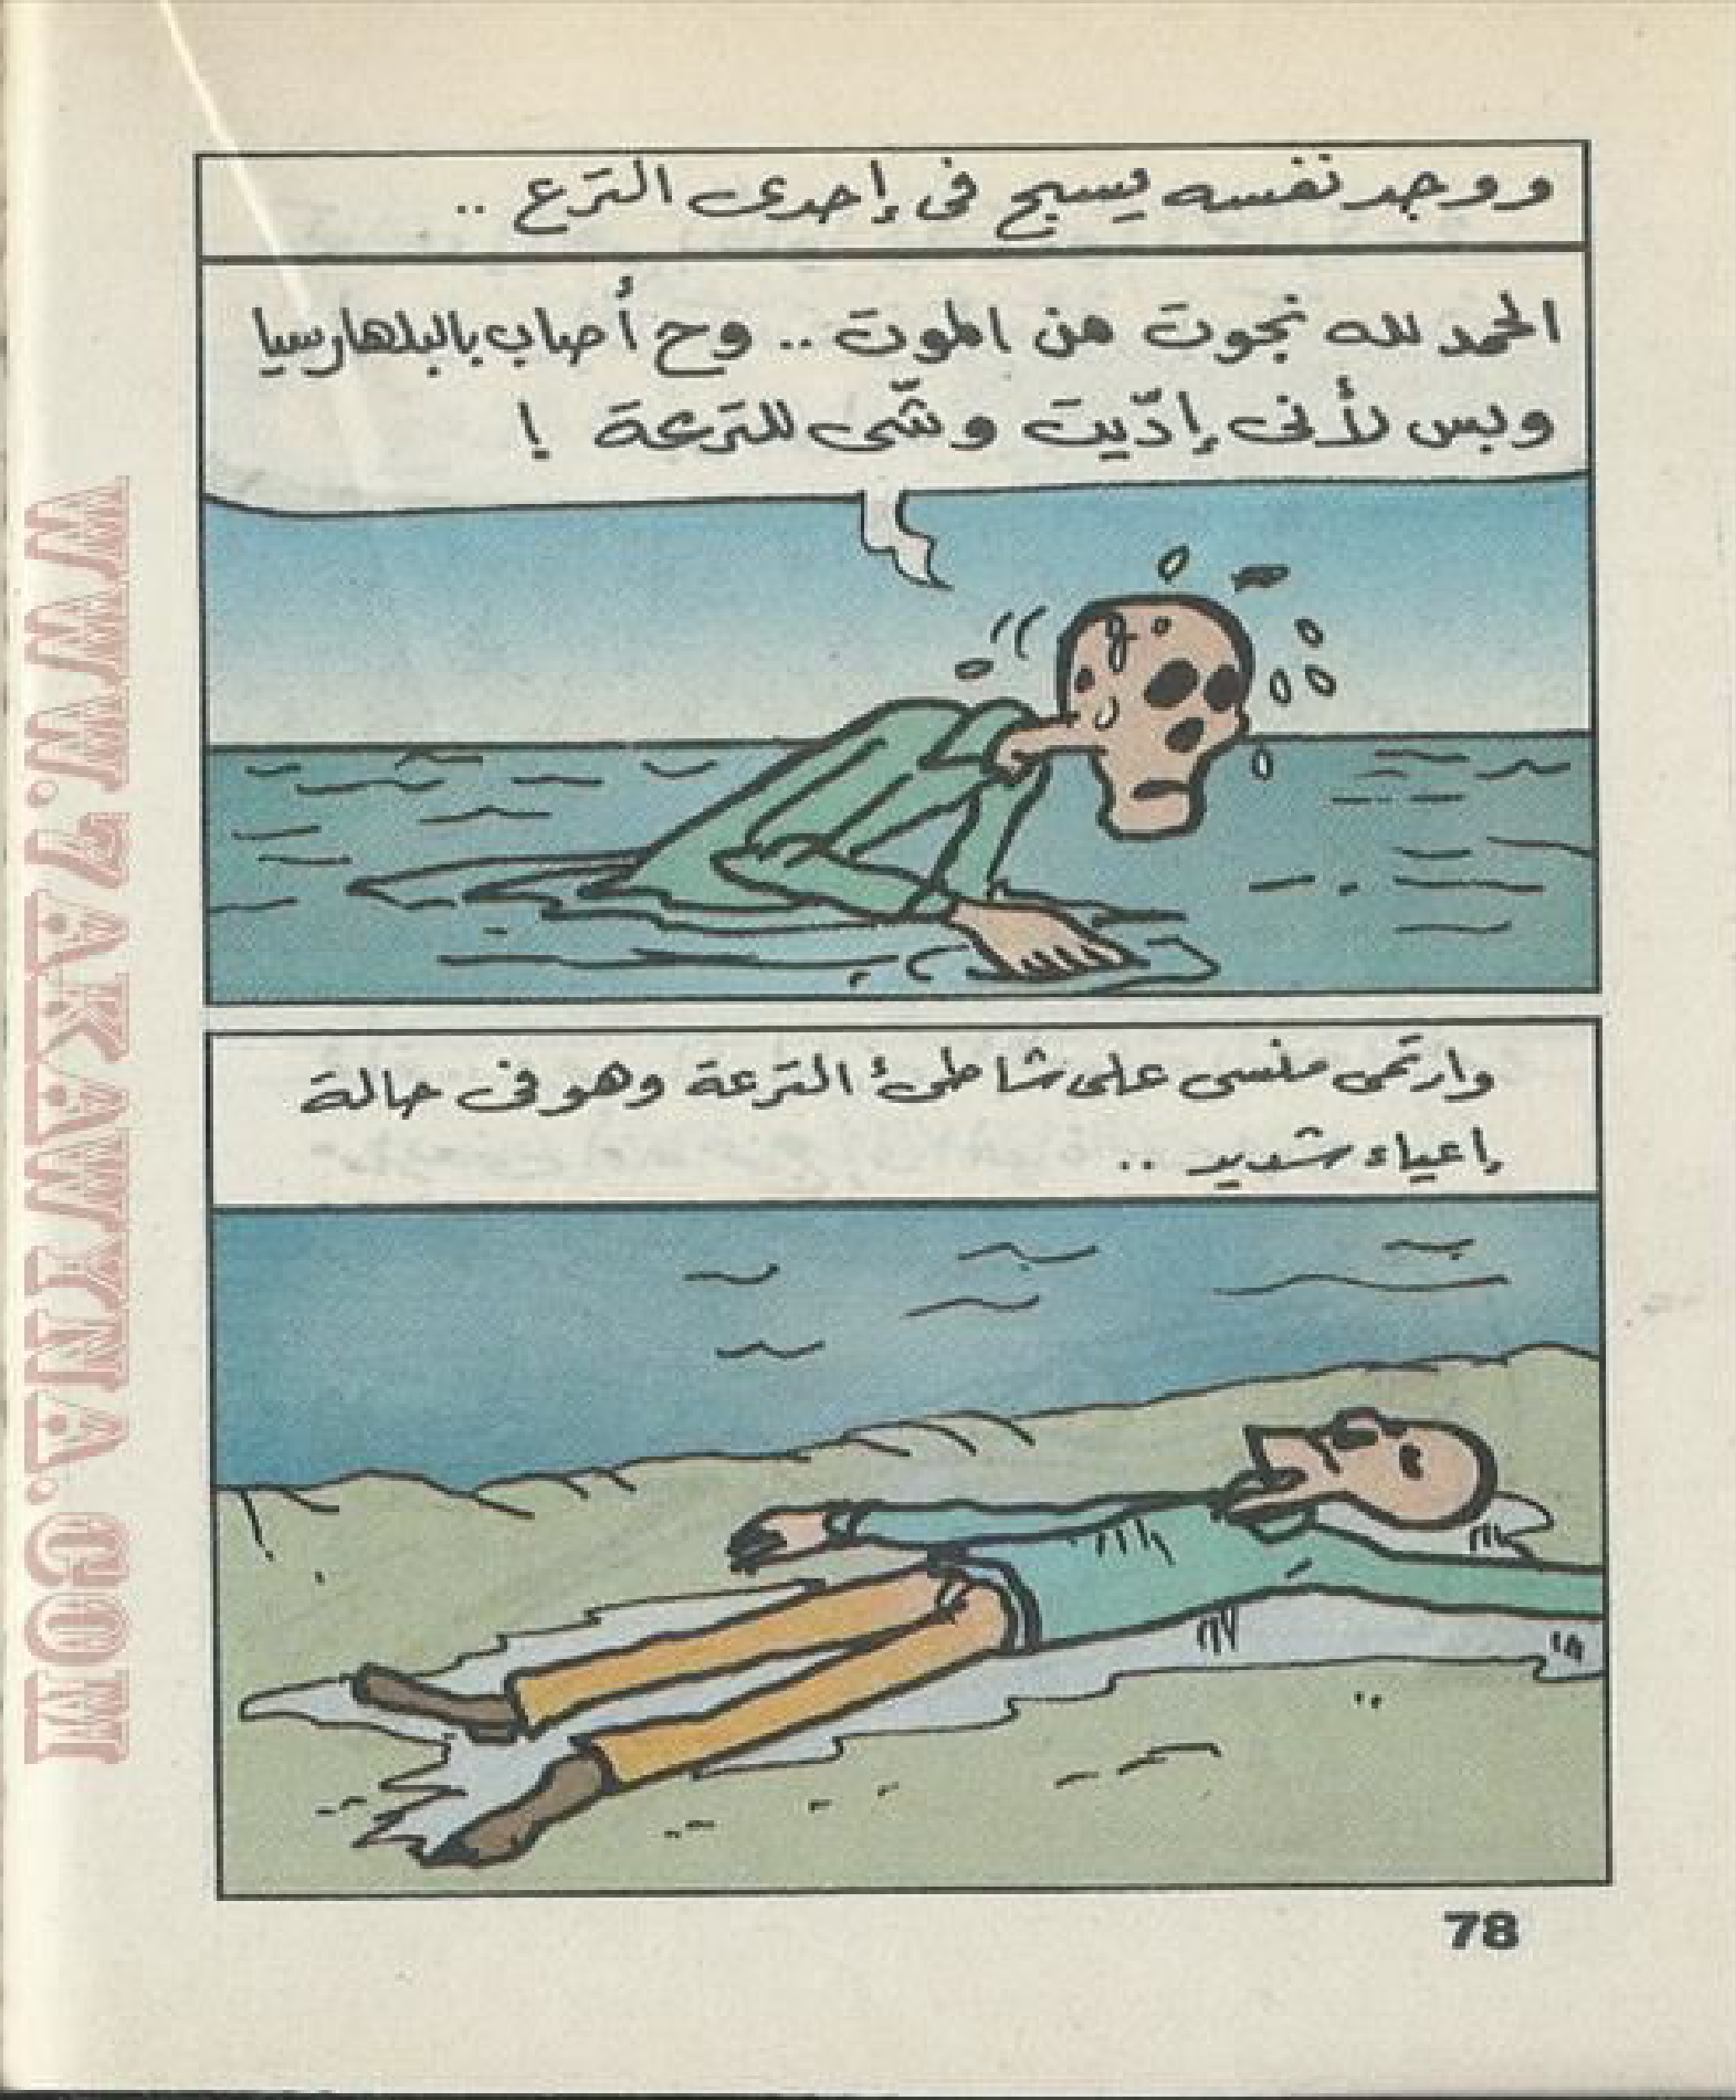 ووجد نفسه يسبح فى إحدى الترع ..
الحمد لله نجوت من الموت .. وح أصاب بالبلهارسيا
وبس لأنى إدّيت وشّى للترعة !
وارتمى منسى على شاطئ الترعة وهو فى حالة
إعياء شديد ..
78
WWW.7AKAWINA.COM